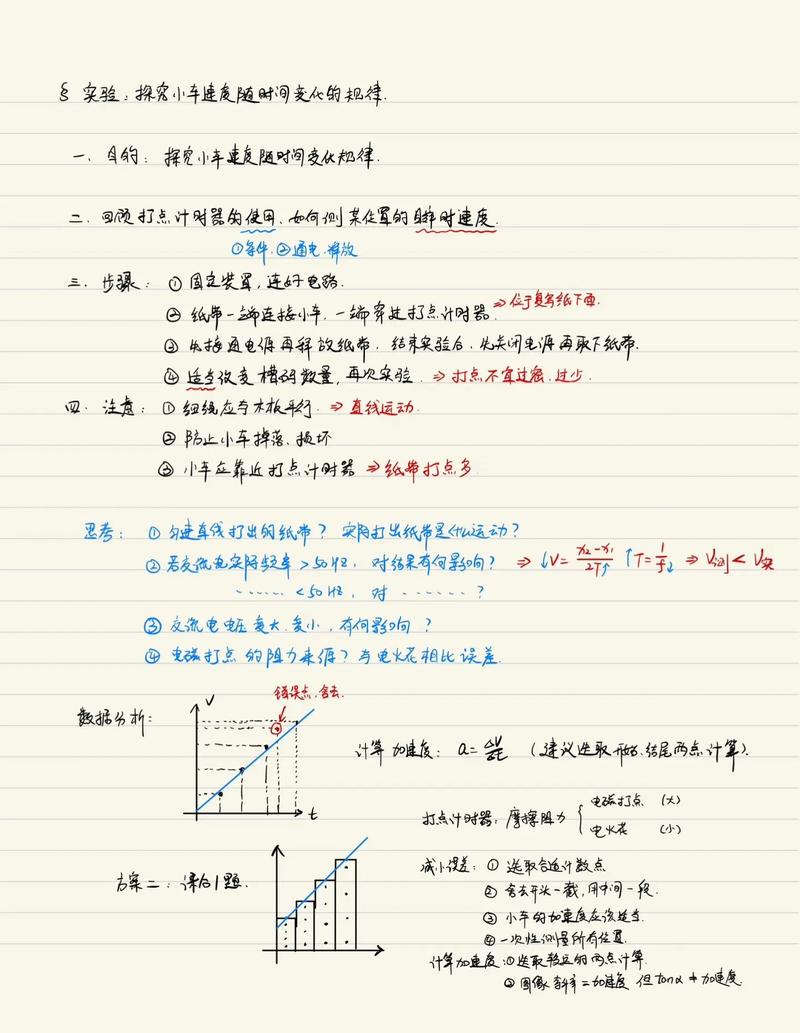 § 实验：探究小车速度随时间变化的规律.
一、目的：探究小车速度随时间变化规律.
二、回顾打点计时器的使用、如何测某位置的瞬时速度.
①条件.②通电.释放
三、步骤：①固定装置，连好电路.
②纸带一端连接小车，一端穿过打点计时器. ⇒位于复写纸下面.
③先接通电源再释放纸带. 结束实验后，先关闭电源再取下纸带.
④适当改变槽码数量，再次实验. ⇒打点不宜过密.过少.
四、注意：①细绳应与木板平行. ⇒直线运动.
②防止小车掉落、损坏
③小车应靠近打点计时器 ⇒纸带打点多.
思考：①匀速直线打出的纸带？实际打出纸带是什么运动？
②若交流电实际频率>50Hz，对结果有何影响？ ⇒ ↓V=(x₂-x₁)/2T↑ ↑T=1/f↓ ⇒ V测<V实
······<50Hz，对·······？
③交流电电压变大.变小，有何影响？
④电磁打点的阻力来源？与电火花相比误差.
错误点，舍去.
数据分析：
V
t
计算加速度：a=ΔV/Δt （建议选取开始、结尾两点计算）.
打点计时器：摩擦阻力 { 电磁打点 （大）
电火花 （小）
方案二：课后1题.
减小误差：①选取合适计数点
②舍去开头一截，用中间一段.
③小车的加速度应该适当.
④一次性测量所有位置.
计算加速度：①选取较远的两点计算.
②图像斜率=加速度 但tanα≠加速度.